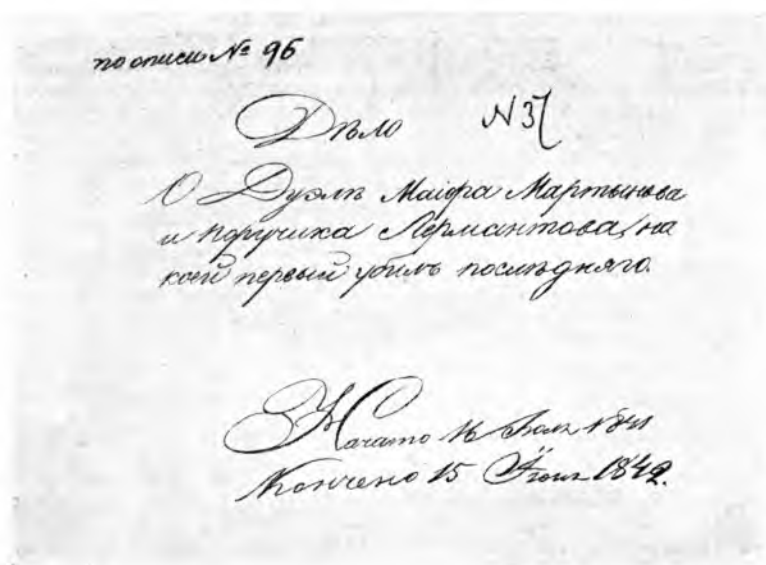 по описи № 96
Дѣло N 37
О Дуэлѣ Маіора Мартынова
и поручика Лермантова, на
коей первый убилъ послѣдняго.
Начато 16 Іюля 1841
Кончено 15 Іюня 1842.